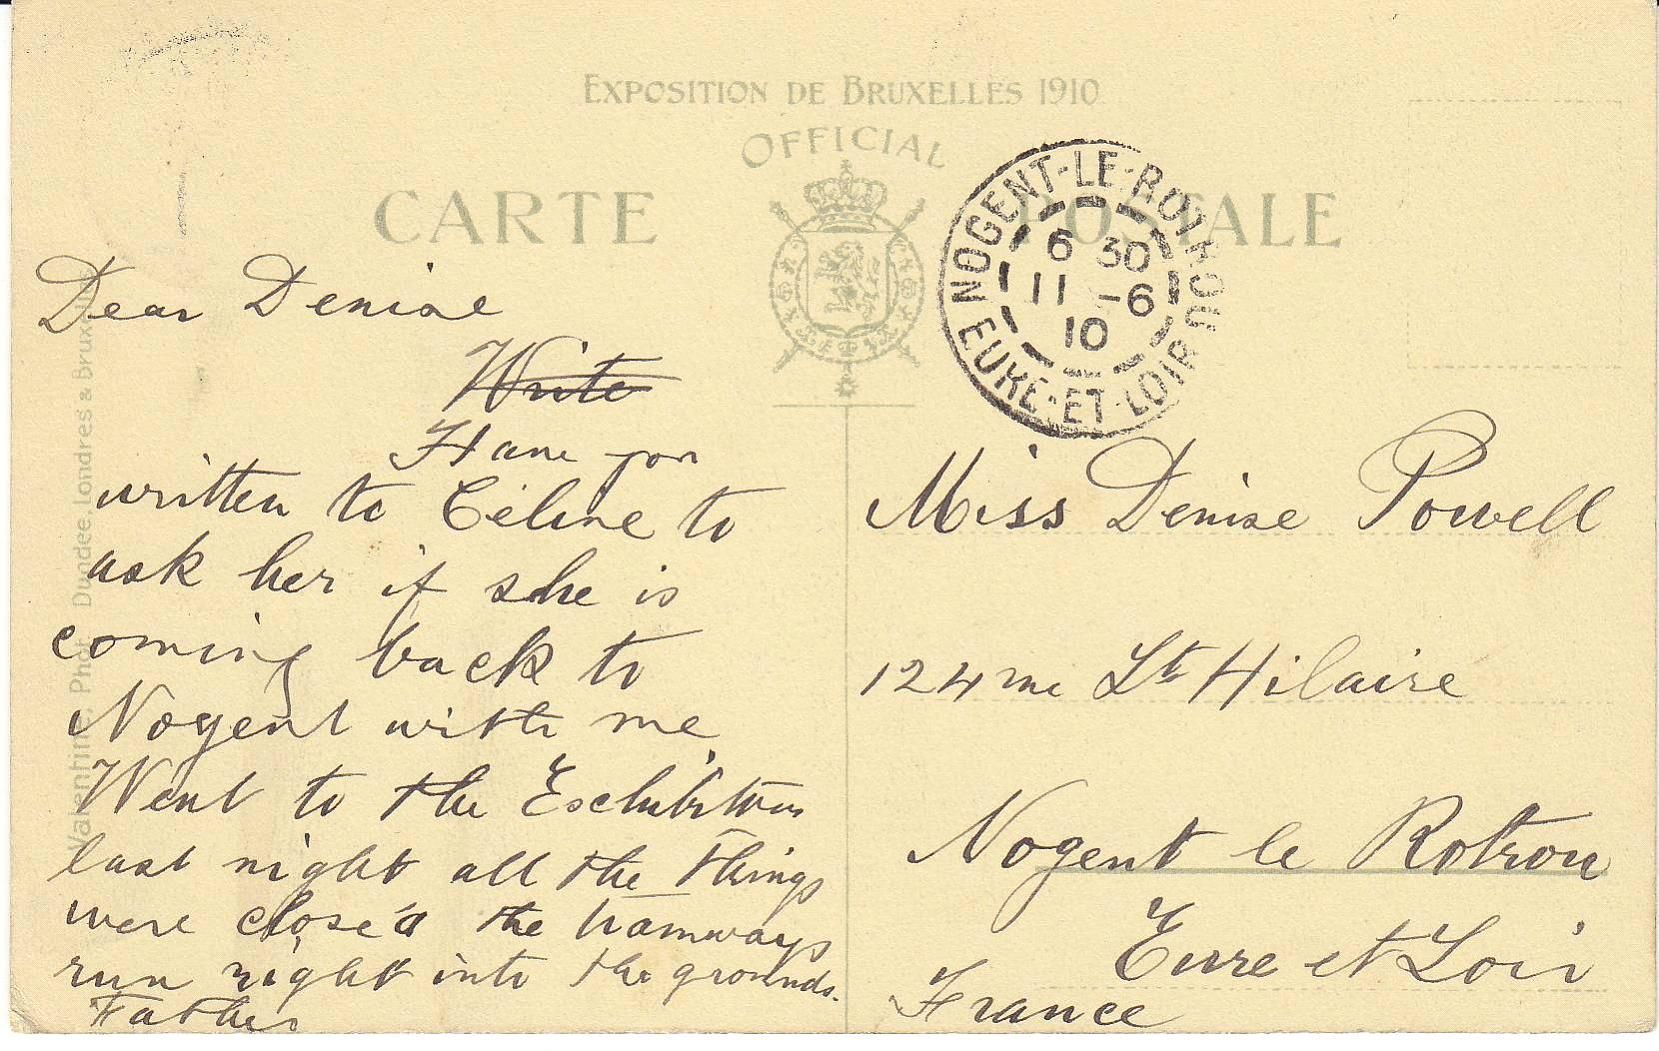 EXPOSITION DE BRUXELLES 1910
OFFICIAL
CARTE POSTALE
NOGENT-LE-ROTROU
6 30
11 -6
10
EURE-ET-LOIR
Dear Denise
Write
Have you
written to Céline to
ask her if she is
coming back to
Nogent with me.
Went to the Exhibition
last night all the things
were close'd the tramways
run right into the grounds.
Father
Miss Denise Powell
124 rue St Hilaire
Nogent le Rotrou
Eure et Loir
France
Valentine, Phot. Dundee, Londres & Bruxelles